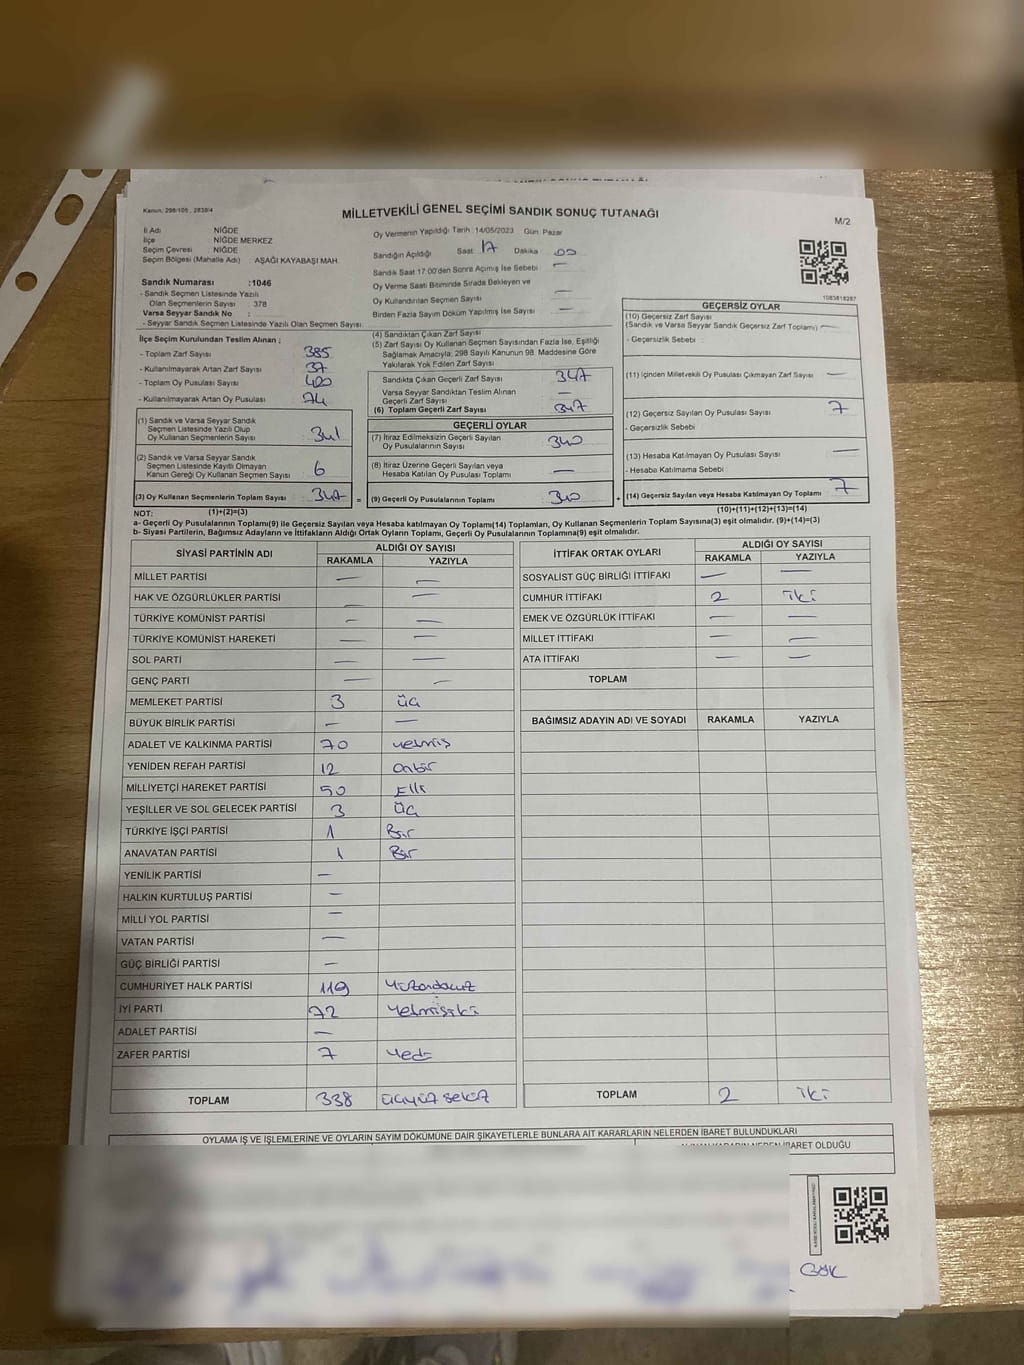 Kanun: 298/105 , 2839/4
MİLLETVEKİLİ GENEL SEÇİMİ SANDIK SONUÇ TUTANAĞI
M/2
İl Adı NİĞDE
İlçe NİĞDE MERKEZ
Seçim Çevresi NİĞDE
Seçim Bölgesi (Mahalle Adı) AŞAĞI KAYABAŞI MAH.
Oy Vermenin Yapıldığı Tarih :14/05/2023 Gün: Pazar
Sandığın Açıldığı Saat 17 Dakika 00
Sandık Saat 17:00'den Sonra Açılmış İse Sebebi —
Oy Verme Saati Bitiminde Sırada Bekleyen ve
Oy Kullandırılan Seçmen Sayısı —
Birden Fazla Sayım Döküm Yapılmış İse Sayısı —
Sandık Numarası :1046
- Sandık Seçmen Listesinde Yazılı
Olan Seçmenlerin Sayısı : 378
Varsa Seyyar Sandık No :
- Seyyar Sandık Seçmen Listesinde Yazılı Olan Seçmen Sayısı:
İlçe Seçim Kurulundan Teslim Alınan ;
- Toplam Zarf Sayısı 385
- Kullanılmayarak Artan Zarf Sayısı 37
- Toplam Oy Pusulası Sayısı 420
- Kullanılmayarak Artan Oy Pusulası 74
(1) Sandık ve Varsa Seyyar Sandık
Seçmen Listesinde Yazılı Olup
Oy Kullanan Seçmenlerin Sayısı 341
(2) Sandık ve Varsa Seyyar Sandık
Seçmen Listesinde Kayıtlı Olmayan
Kanun Gereği Oy Kullanan Seçmen Sayısı 6
(3) Oy Kullanan Seçmenlerin Toplam Sayısı 347 =
(1)+(2)=(3)
(4) Sandıktan Çıkan Zarf Sayısı
(5) Zarf Sayısı Oy Kullanan Seçmen Sayısından Fazla İse, Eşitliği
Sağlamak Amacıyla, 298 Sayılı Kanunun 98. Maddesine Göre
Yakılarak Yok Edilen Zarf Sayısı
Sandıkta Çıkan Geçerli Zarf Sayısı 347
Varsa Seyyar Sandıktan Teslim Alınan
Geçerli Zarf Sayısı —
(6) Toplam Geçerli Zarf Sayısı 347
GEÇERLİ OYLAR
(7) İtiraz Edilmeksizin Geçerli Sayılan
Oy Pusulalarının Sayısı 340
(8) İtiraz Üzerine Geçerli Sayılan veya
Hesaba Katılan Oy Pusulası Toplamı —
(9) Geçerli Oy Pusulalarının Toplamı 340 +
1083818287
GEÇERSİZ OYLAR
(10) Geçersiz Zarf Sayısı
(Sandık ve Varsa Seyyar Sandık Geçersiz Zarf Toplamı) —
- Geçersizlik Sebebi :
(11) İçinden Milletvekili Oy Pusulası Çıkmayan Zarf Sayısı —
(12) Geçersiz Sayılan Oy Pusulası Sayısı 7
- Geçersizlik Sebebi
(13) Hesaba Katılmayan Oy Pusulası Sayısı —
- Hesaba Katılmama Sebebi
(14) Geçersiz Sayılan veya Hesaba Katılmayan Oy Toplamı 7
(10)+(11)+(12)+(13)=(14)
NOT:
a- Geçerli Oy Pusulalarının Toplamı(9) ile Geçersiz Sayılan veya Hesaba katılmayan Oy Toplamı(14) Toplamları, Oy Kullanan Seçmenlerin Toplam Sayısına(3) eşit olmalıdır. (9)+(14)=(3)
b- Siyasi Partilerin, Bağımsız Adayların ve İttifakların Aldığı Ortak Oyların Toplamı, Geçerli Oy Pusulalarının Toplamına(9) eşit olmalıdır.
SİYASİ PARTİNİN ADI ALDIĞI OY SAYISI
RAKAMLA YAZIYLA
MİLLET PARTİSİ — —
HAK VE ÖZGÜRLÜKLER PARTİSİ — —
TÜRKİYE KOMÜNİST PARTİSİ — —
TÜRKİYE KOMÜNİST HAREKETİ — —
SOL PARTİ — —
GENÇ PARTİ — —
MEMLEKET PARTİSİ 3 üç
BÜYÜK BİRLİK PARTİSİ — —
ADALET VE KALKINMA PARTİSİ 70 yetmiş
YENİDEN REFAH PARTİSİ 12
MİLLİYETÇİ HAREKET PARTİSİ 50 Elli
YEŞİLLER VE SOL GELECEK PARTİSİ 3 Üç
TÜRKİYE İŞÇİ PARTİSİ 1 Bir
ANAVATAN PARTİSİ 1 Bir
YENİLİK PARTİSİ —
HALKIN KURTULUŞ PARTİSİ —
MİLLİ YOL PARTİSİ —
VATAN PARTİSİ —
GÜÇ BİRLİĞİ PARTİSİ —
CUMHURİYET HALK PARTİSİ 119
İYİ PARTİ 72 Yetmişiki
ADALET PARTİSİ —
ZAFER PARTİSİ 7 Yedi
TOPLAM 338 üçyüz sekiz
İTTİFAK ORTAK OYLARI ALDIĞI OY SAYISI
RAKAMLA YAZIYLA
SOSYALİST GÜÇ BİRLİĞİ İTTİFAKI — —
CUMHUR İTTİFAKI 2 iki
EMEK VE ÖZGÜRLÜK İTTİFAKI — —
MİLLET İTTİFAKI — —
ATA İTTİFAKI — —
TOPLAM
BAĞIMSIZ ADAYIN ADI VE SOYADI RAKAMLA YAZIYLA
TOPLAM 2 iki
OYLAMA İŞ VE İŞLEMLERİNE VE OYLARIN SAYIM DÖKÜMÜNE DAİR ŞİKAYETLERLE BUNLARA AİT KARARLARIN NELERDEN İBARET BULUNDUKLARI
ALINAN KARARIN NEDEN İBARET OLDUĞU